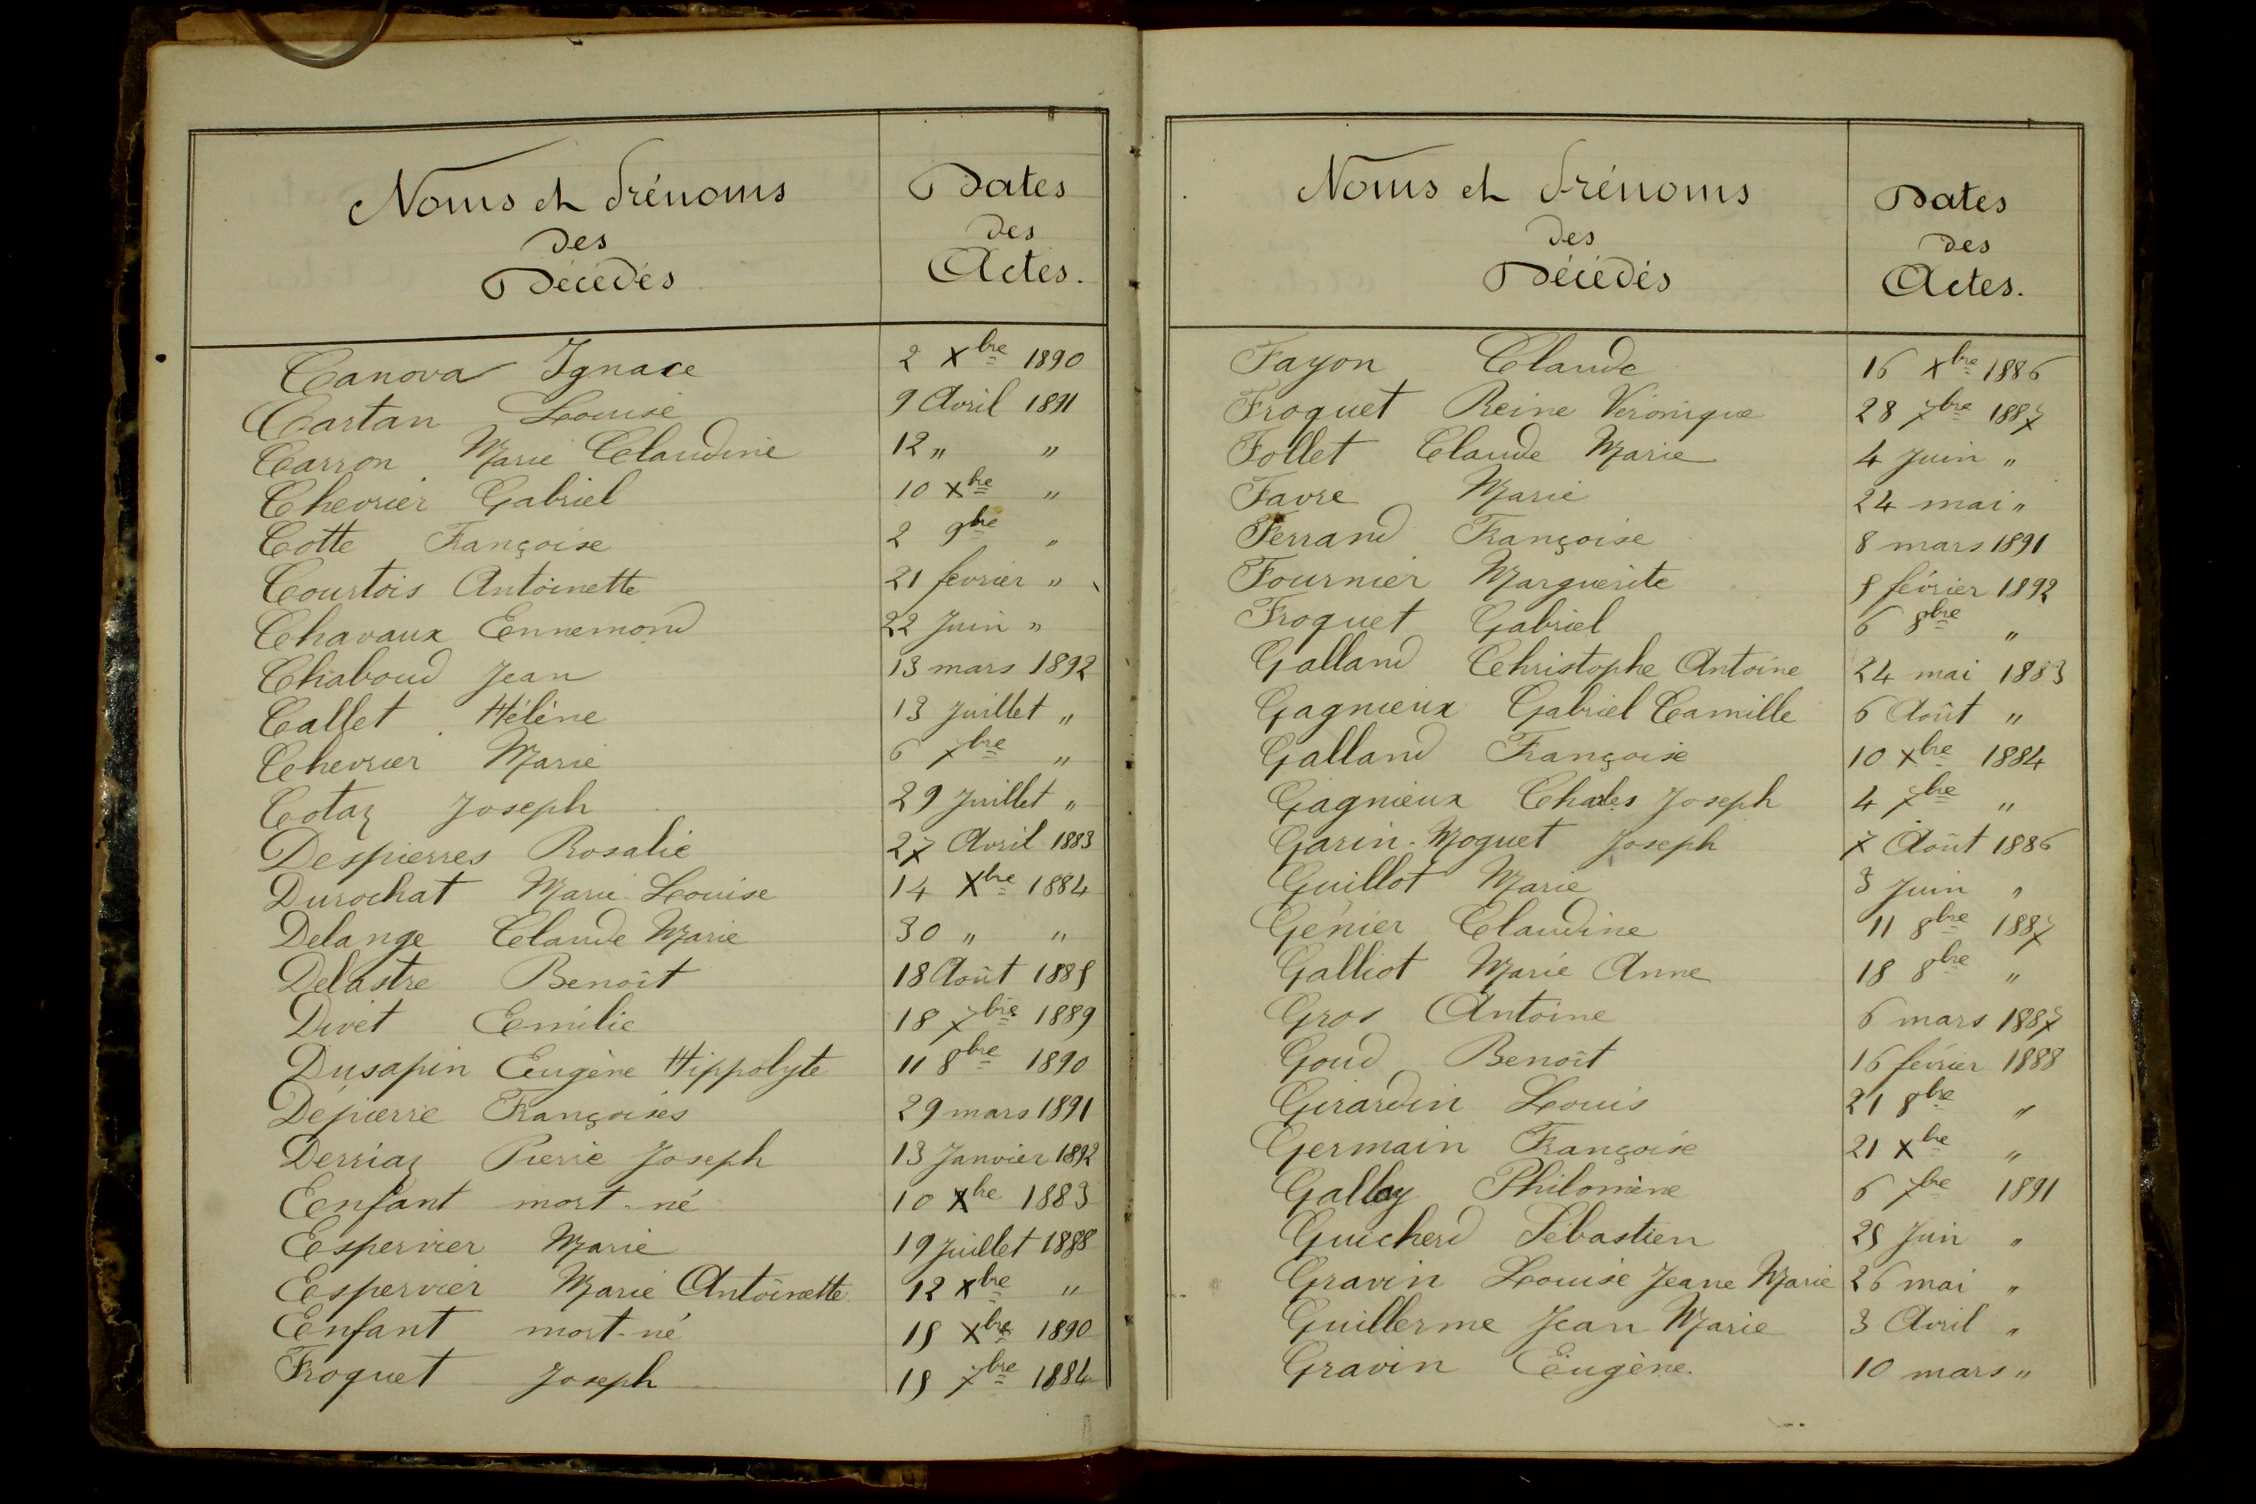 Noms et Prénoms
des
Décédés
Dates
des
Actes.
Canova Ignace 2 Xbre 1890
Cartan Louise 9 Avril 1891
Carron Marie Claudine 12 " "
Chevrier Gabriel 10 Xbre "
Cotte Françoise 2 9bre "
Courtois Antoinette 21 février "
Chavaux Ennemond 22 Juin "
Chaboud Jean 13 mars 1892
Callet Hélène 13 Juillet "
Chevrier Marie 6 7bre "
Cotaz Joseph 29 Juillet "
Despierres Rosalie 27 Avril 1883
Durochat Marie Louise 14 Xbre 1884
Delange Claude Marie 30 " "
Delastre Benoît 18 Août 1885
Divet Emilie 18 7bre 1889
Dusapin Eugène Hippolyte 11 8bre 1890
Dépierre Françoises 29 mars 1891
Derriaz Pierre Joseph 13 Janvier 1892
Enfant mort-né 10 Xbre 1883
Espervier Marie 19 Juillet 1888
Espervier Marie Antoinette 12 Xbre "
Enfant mort-né 15 Xbre 1890
Froquet Joseph 15 7bre 1884
Noms et Prénoms
des
Décédés
Dates
des
Actes.
Fayon Claude 16 Xbre 1886
Froquet Reine Véronique 28 7bre 1887
Follet Claude Marie 4 Juin "
Favre Marie 24 mai "
Ferrand Françoise 8 mars 1891
Fournier Marguerite 5 février 1892
Froquet Gabriel 6 8bre "
Galland Christophe Antoine 24 mai 1883
Gagnieux Gabriel Camille 6 Août "
Galland Françoise 10 Xbre 1884
Gagnieux Charles Joseph 4 7bre "
Garin-Moquet Joseph 7 Août 1886
Guillot Marie 3 Juin "
Génier Claudine 11 8bre 1887
Galliot Marie Anne 18 8bre "
Gros Antoine 6 mars 1887
Goud Benoît 16 février 1888
Girardin Louis 21 8bre "
Germain Françoise 21 Xbre "
Gallay Philomène 6 7bre 1891
Guicherd Sébastien 25 Juin "
Gravin Louise Jeane Marie 26 mai "
Guillerme Jean Marie 3 Avril "
Gravin Eugène. 10 mars "